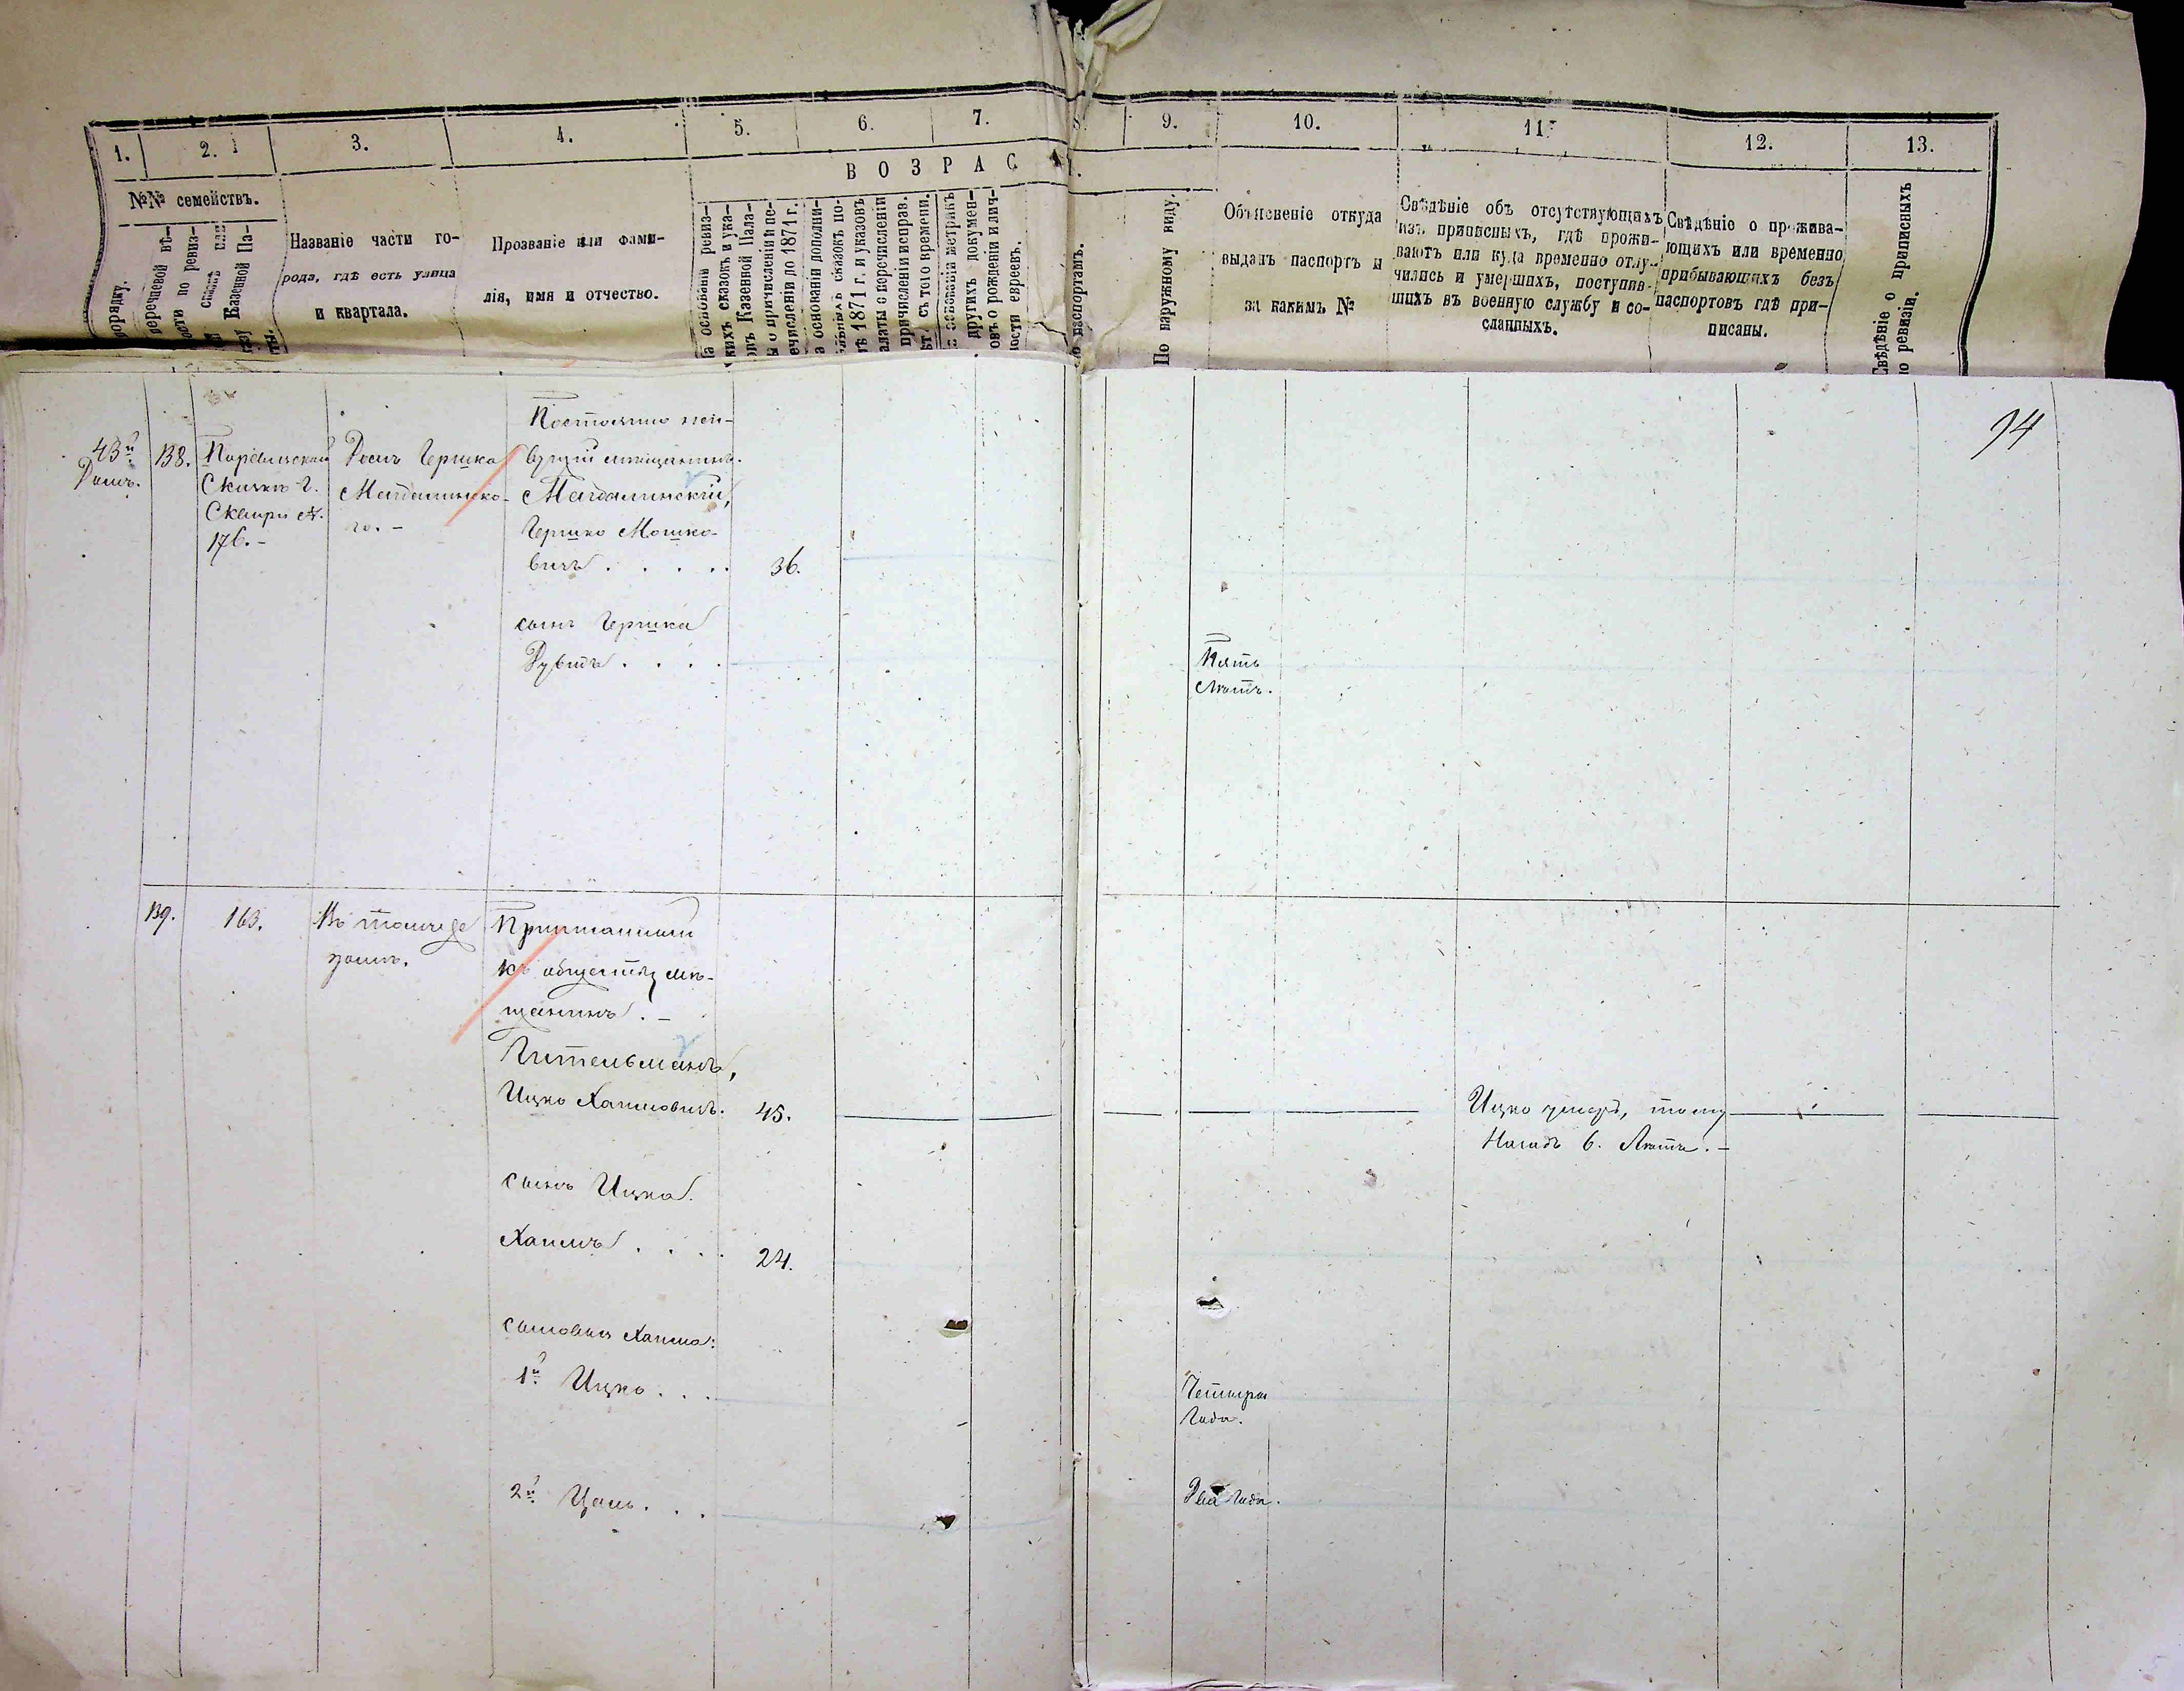 1.
2.
3.
4.
5.
6.
7.
8.
9.
10.
11.
12.
13.
В О З Р А С Т.
№№ семействъ.
порядку.
перечневой вѣ-
ости по ревиз-
сказкѣ или
Казенной Па-
Названіе части го-
рода, гдѣ есть улица
и квартала.
Прозваніе или фами-
лія, имя и отчество.
На основаніи ревиз-
скихъ сказокъ и ука-
зовъ Казенной Пала-
ты о причисленіи и пе-
речисленіи до 1871 г.
а основаніи дополни-
тельныхъ сказокъ по-
лѣ 1871 г. и указовъ
алаты о перечисленіи
причисленіи исправ.
ѣт. съ того времени.
основаніи метрикъ
другихъ докумен-
овъ о рожденіи и лич-
ности евреевъ.
паспортамъ.
По наружному виду.
Объясненіе откуда
выданъ паспортъ и
за какимъ №
Свѣдѣніе объ отсутствующихъ
изъ приписныхъ, гдѣ прожи-
ваютъ или куда временно отлу-
чились и умершихъ, поступив-
шихъ въ военную службу и со-
сланныхъ.
Свѣдѣніе о прожива-
ющихъ или временно
прибывающихъ безъ
паспортовъ гдѣ при-
писаны.
Свѣдѣніе о приписныхъ
по ревизіи.
94
43й
Домъ.
138.
Сказкѣ г.
Сквири №.
176.-
Домъ Гершка
Магдалинско-
го. -
Постоянно жи-
вущій мѣщанинъ.
Магдалинскій,
Гершко Мошко-
вичъ . . . . .
36.
сынъ Гершка
Дувидъ . . . .
Пять
Лѣтъ.
139.
163.
Въ томъ же
домѣ.
къ обществу мѣ-
щанинъ. -
Гительманъ,
Ицко Хаимовичъ.
45.
Ицко умеръ, тому
Назадъ 6. Лѣтъ. -
сынъ Ицка.
Хаимъ . . . .
24.
сыновья Хаима:
1й Ицко . . .
Четыре
Года.
2й Цаль . . .
Два Года.